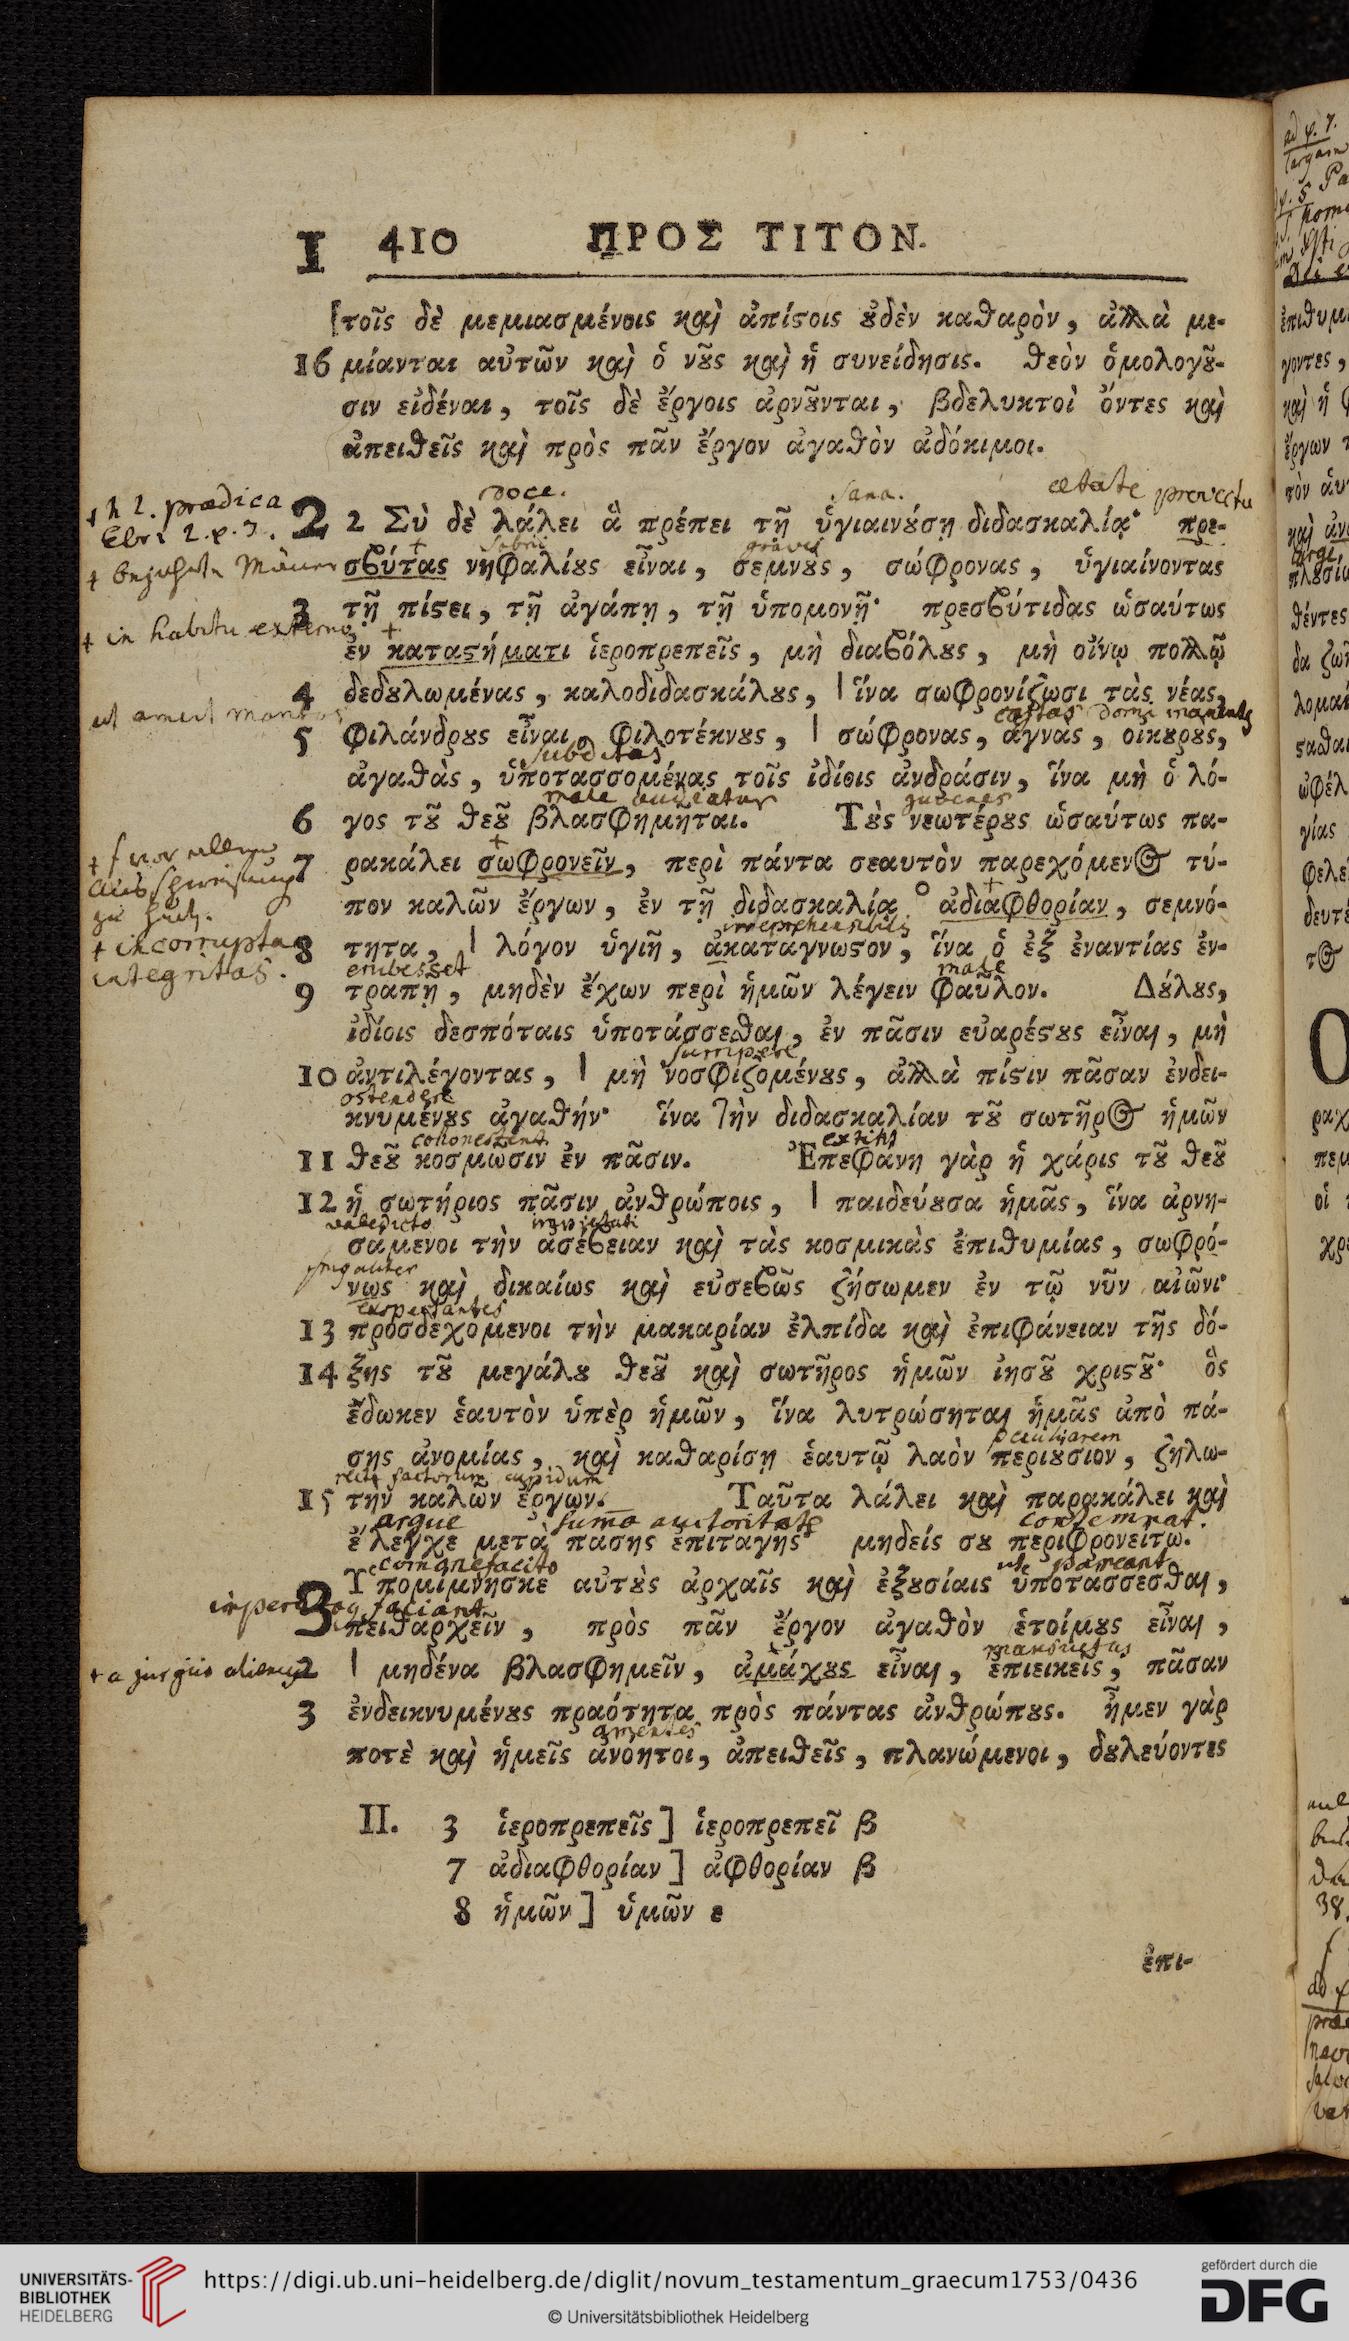 1 410 ΠΡΟΣ ΤΙΤΟΝ.
[τοῖς δὲ μεμιασμένοις καὶ ἀπίϛοις ȣ̓δὲν καθαρὸν, ἀλλὰ με-
16 μίανται αὐτῶν καὶ ὁ νȣ͂ς καὶ ἡ συνείδησις. θεὸν ὁμολογȣ͂-
σιν εἰδέναι, τοῖς δὲ ἔργοις ἀρνȣ͂νται, βδελυκτοὶ ὄντες καὶ
ἀπειθεῖς καὶ πρὸς πᾶν ἔργον ἀγαθὸν ἀδόκιμοι.
doce. sana. ætate
† h l. prædica
2 2 Σὺ δὲ λάλει ἃ πρέπει τῇ ὑγιαινȣ́σῃ διδασκαλίᾳ· πρε-
σβύτας νηφαλίȣς εἶναι, σεμνȣ̀ς, σώφρονας, ὑγιαίνοντας
3 τῇ πίϛει, τῇ ἀγάπῃ, τῇ ὑπομονῇ· πρεσβύτιδας ὡσαύτως
† in habitu externo
ἐν καταϛήματι ἱεροπρεπεῖς, μὴ διαβόλȣς, μὴ οἴνῳ πολλῷ
4 δεδȣλωμένας, καλοδιδασκάλȣς, | ἵνα σωφρονίζωσι τὰς νέας,
castas domi manentes
5 φιλάνδρȣς εἶναι, φιλοτέκνȣς, | σώφρονας, ἁγνὰς, οἰκȣρȣ̀ς,
subditas
ἀγαθὰς, ὑποτασσομένας τοῖς ἰδίοις ἀνδράσιν, ἵνα μὴ ὁ λό-
male audiatur juvenes
6 γος τȣ͂ θεȣ͂ βλασφημῆται. Τȣ̀ς νεωτέρȣς ὡσαύτως πα-
7 ρακάλει σωφρονεῖν, περὶ πάντα σεαυτὸν παρεχόμενος τύ-
πον καλῶν ἔργων, ἐν τῇ διδασκαλίᾳ ° ἀδιαφθορίαν, σεμνό-
† incorrupta
integritas.
8 τητα, | λόγον ὑγιῆ, ἀκατάγνωϛον, ἵνα ὁ ἐξ ἐναντίας ἐν-
male
9 τραπῇ, μηδὲν ἔχων περὶ ἡμῶν λέγειν φαῦλον. Δȣ́λȣς,
ἰδίοις δεσπόταις ὑποτάσσεσθαι, ἐν πᾶσιν εὐαρέϛȣς εἶναι, μὴ
10 ἀντιλέγοντας, | μὴ νοσφιζομένȣς, ἀλλὰ πίϛιν πᾶσαν ἐνδει-
ostendere
κνυμένȣς ἀγαθήν· ἵνα τὴν διδασκαλίαν τȣ͂ σωτῆρος ἡμῶν
11 θεȣ͂ κοσμῶσιν ἐν πᾶσιν. Ἐπεφάνη γὰρ ἡ χάρις τȣ͂ θεȣ͂
12 ἡ σωτήριος πᾶσιν ἀνθρώποις, | παιδεύȣσα ἡμᾶς, ἵνα ἀρνη-
σάμενοι τὴν ἀσέβειαν καὶ τὰς κοσμικὰς ἐπιθυμίας, σωφρό-
νως καὶ δικαίως καὶ εὐσεβῶς ζήσωμεν ἐν τῷ νῦν αἰῶνι·
expectantes
13 προσδεχόμενοι τὴν μακαρίαν ἐλπίδα καὶ ἐπιφάνειαν τῆς δό-
14 ξης τȣ͂ μεγάλȣ θεȣ͂ καὶ σωτῆρος ἡμῶν ἰησȣ͂ χριϛȣ͂· ὃς
ἔδωκεν ἑαυτὸν ὑπὲρ ἡμῶν, ἵνα λυτρώσηται ἡμᾶς ἀπὸ πά-
peculiarem
σης ἀνομίας, καὶ καθαρίσῃ ἑαυτῷ λαὸν περιȣ́σιον, ζηλω-
recte factorum cupidum
15 τὴν καλῶν ἔργων. Ταῦτα λάλει καὶ παρακάλει καὶ
argue suma auctoritate contemnat.
ἔλεγχε μετὰ πάσης ἐπιταγῆς· μηδείς σȣ περιφρονείτω.
comonefacito ut pareant
3 Ὑπομίμνησκε αὐτȣ̀ς ἀρχαῖς καὶ ἐξȣσίαις ὑποτάσσεσθαι,
πειθαρχεῖν, πρὸς πᾶν ἔργον ἀγαθὸν ἑτοίμȣς εἶναι,
mansuetus
† a jurgiis alienus
2 | μηδένα βλασφημεῖν, ἀμάχȣς εἶναι, ἐπιεικεῖς, πᾶσαν
3 ἐνδεικνυμένȣς πραότητα πρὸς πάντας ἀνθρώπȣς. ἦμεν γὰρ
amentes
ποτὲ καὶ ἡμεῖς ἀνόητοι, ἀπειθεῖς, πλανώμενοι, δȣλεύοντες
II. 3 ἱεροπρεπεῖς] ἱεροπρεπεῖ β
7 ἀδιαφθορίαν] ἀφθορίαν β
8 ἡμῶν] ὑμῶν ε
ἐπι-
UNIVERSITÄTS-
BIBLIOTHEK
HEIDELBERG
https://digi.ub.uni-heidelberg.de/diglit/novum_testamentum_graecum1753/0436
© Universitätsbibliothek Heidelberg
gefördert durch die
DFG